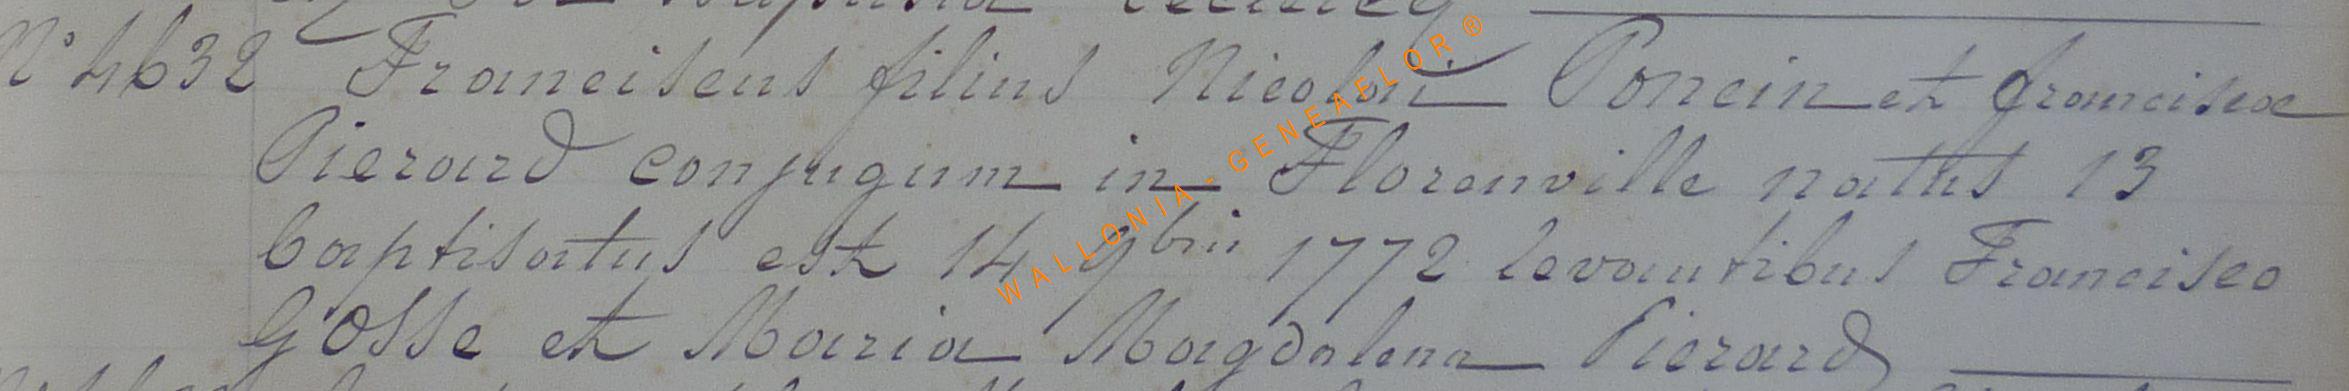 N° 4632 Franciscus filius Nicolai Poncin et franciscæ
Pierard conjugum in Florenville natus 13
baptisatus est 14 9bris 1772 levantibus Francisco
Gosse et Maria Magdalena Pierard
WALLONIA - GENEAELOR®